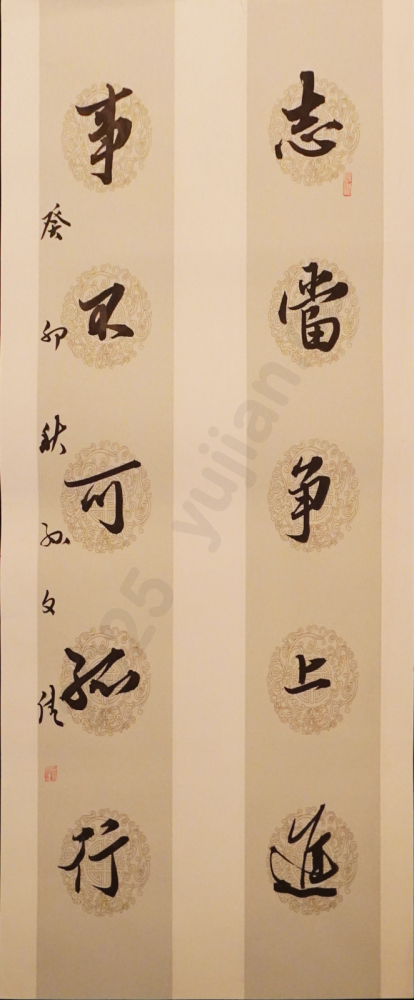 志當争上進
事不可孤行
癸卯秋孙文佳
25 yujian